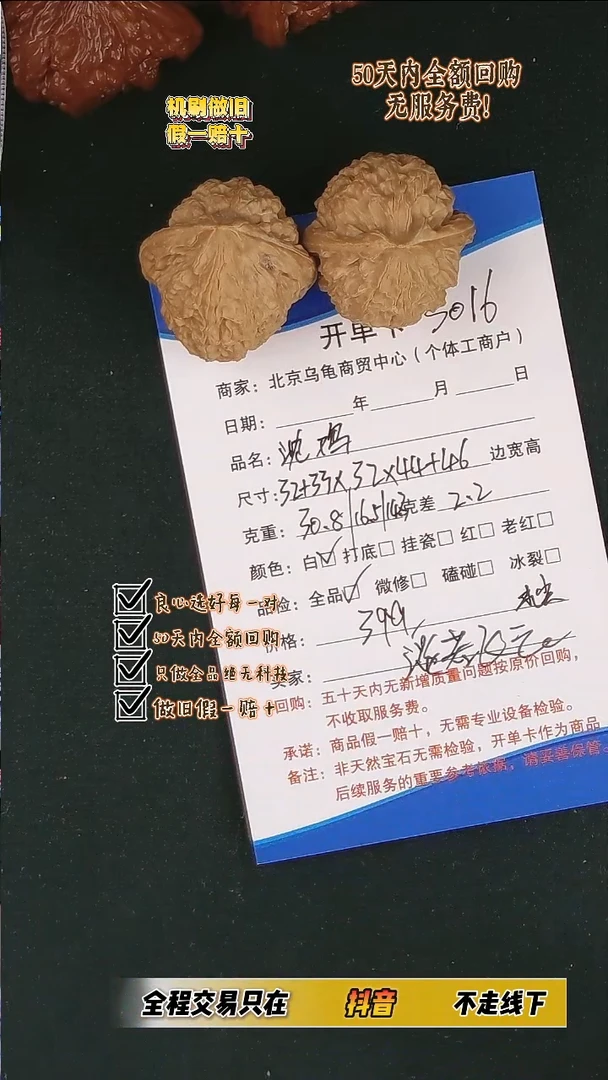 50天内全额回购
无服务费!
机刷做旧
假一赔十
开单卡 5016
商家：北京乌龟商贸中心（个体工商户）
日期：年 月 日
品名：
尺寸：32+33×32×44+46 边宽高
克重：30.8|16.5|14.3克差 2.2
颜色：白☑ 打底□ 挂瓷□ 红□ 老红□
品检：全品☑ 微修□ 磕碰□ 冰裂□
价格：399
买家：
回购：五十天内无新增质量问题按原价回购，
不收取服务费。
承诺：商品假一赔十，无需专业设备检验。
备注：非天然宝石无需检验，开单卡作为商品
后续服务的重要参考依据，请妥善保管。
良心选好每一对
50天内全额回购
只做全品绝无科技
做旧假一赔十
全程交易只在 抖音 不走线下